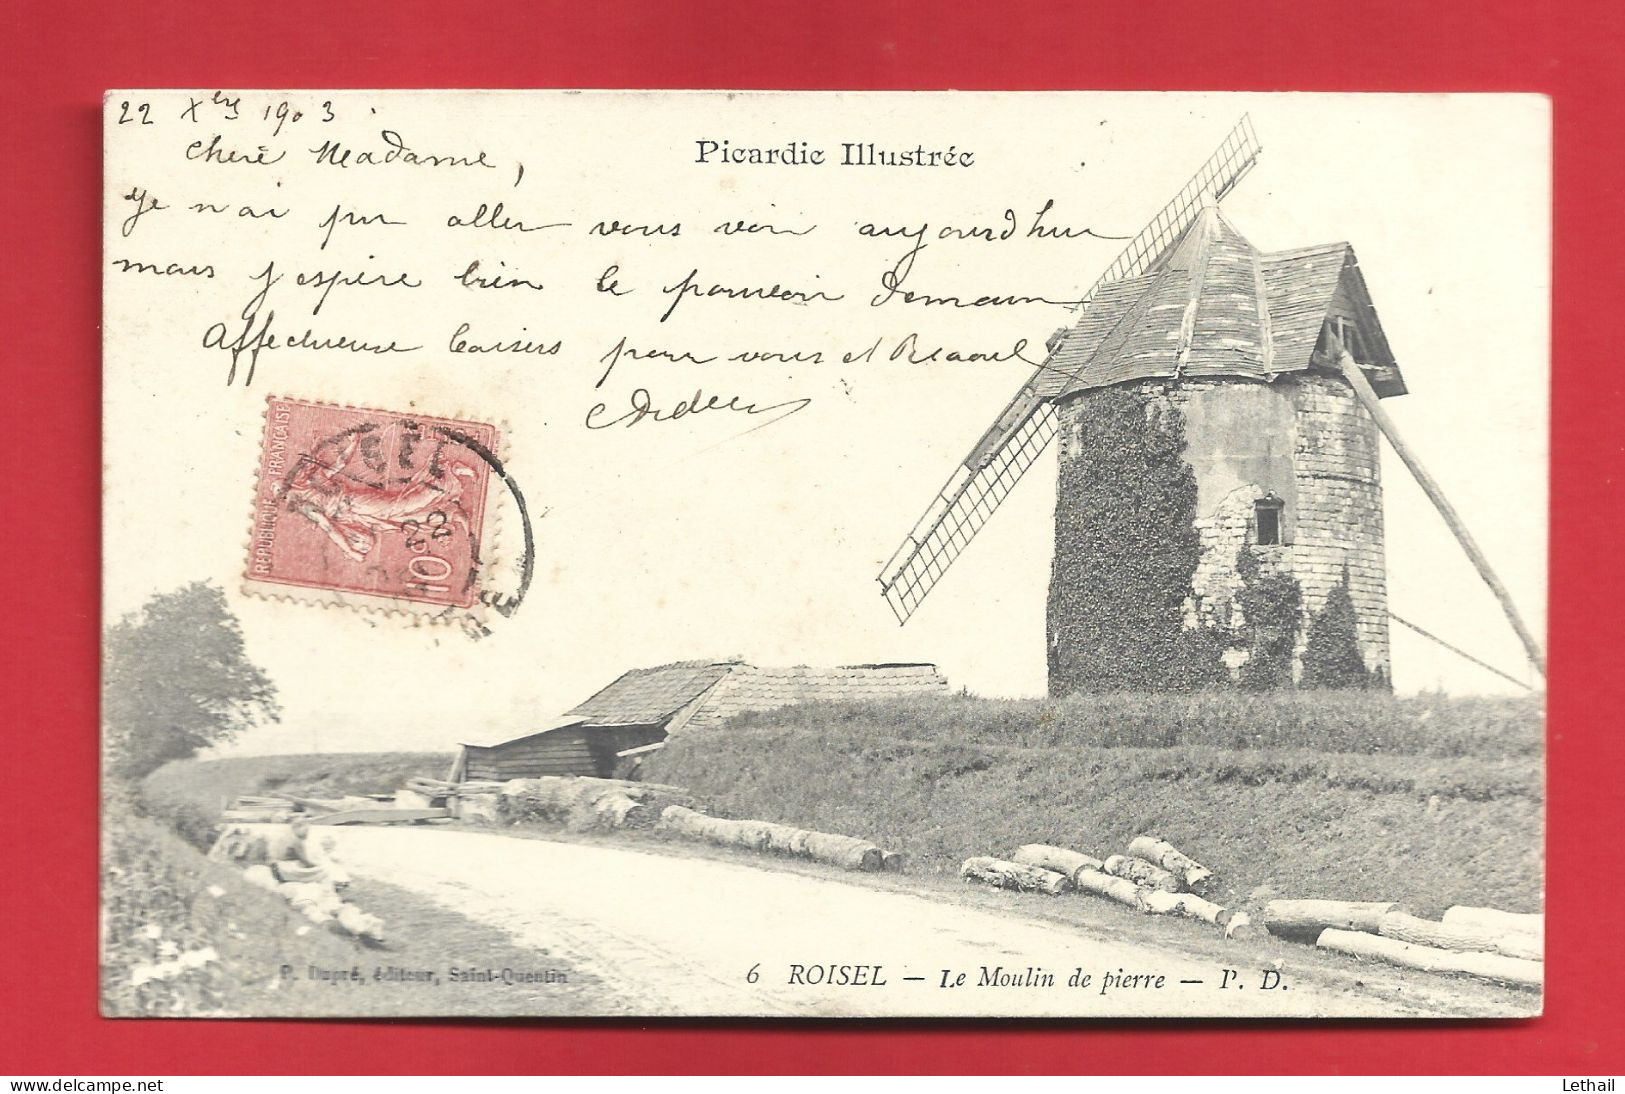 22 Xbre 1903.
Chère Madame,
Picardie Illustrée
Je n'ai pu aller vous voir aujourd'hui
mais j'espère bien le pouvoir demain
Affectueux baisers pour vous et Raoul
RÉPUBLIQUE FRANÇAISE
POSTES
22
10c
P. Dupré, éditeur, Saint-Quentin
6 ROISEL — Le Moulin de pierre — P. D.
delcampe.net
Lethail